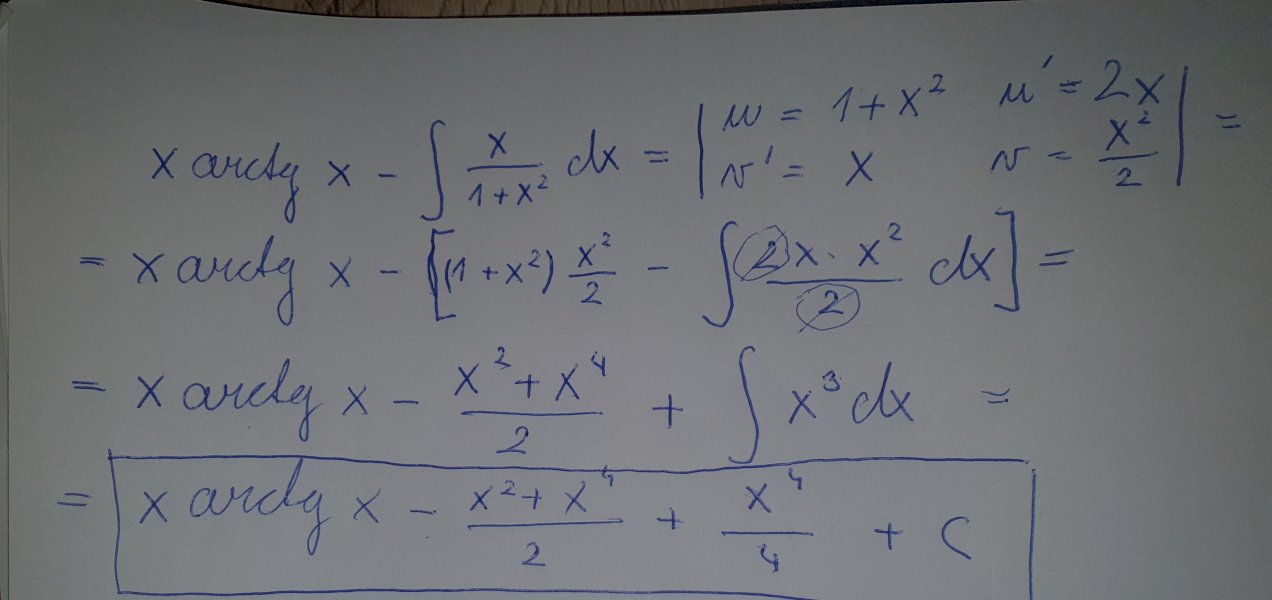 x arctg x - ∫ x/(1+x²) dx = | u = 1+x² u' = 2x v' = x v = x²/2 | =
= x arctg x - [(1+x²) x²/2 - ∫ 2x · x²/2 dx] =
= x arctg x - (x²+x⁴)/2 + ∫ x³ dx =
= x arctg x - (x²+x⁴)/2 + x⁴/4 + C